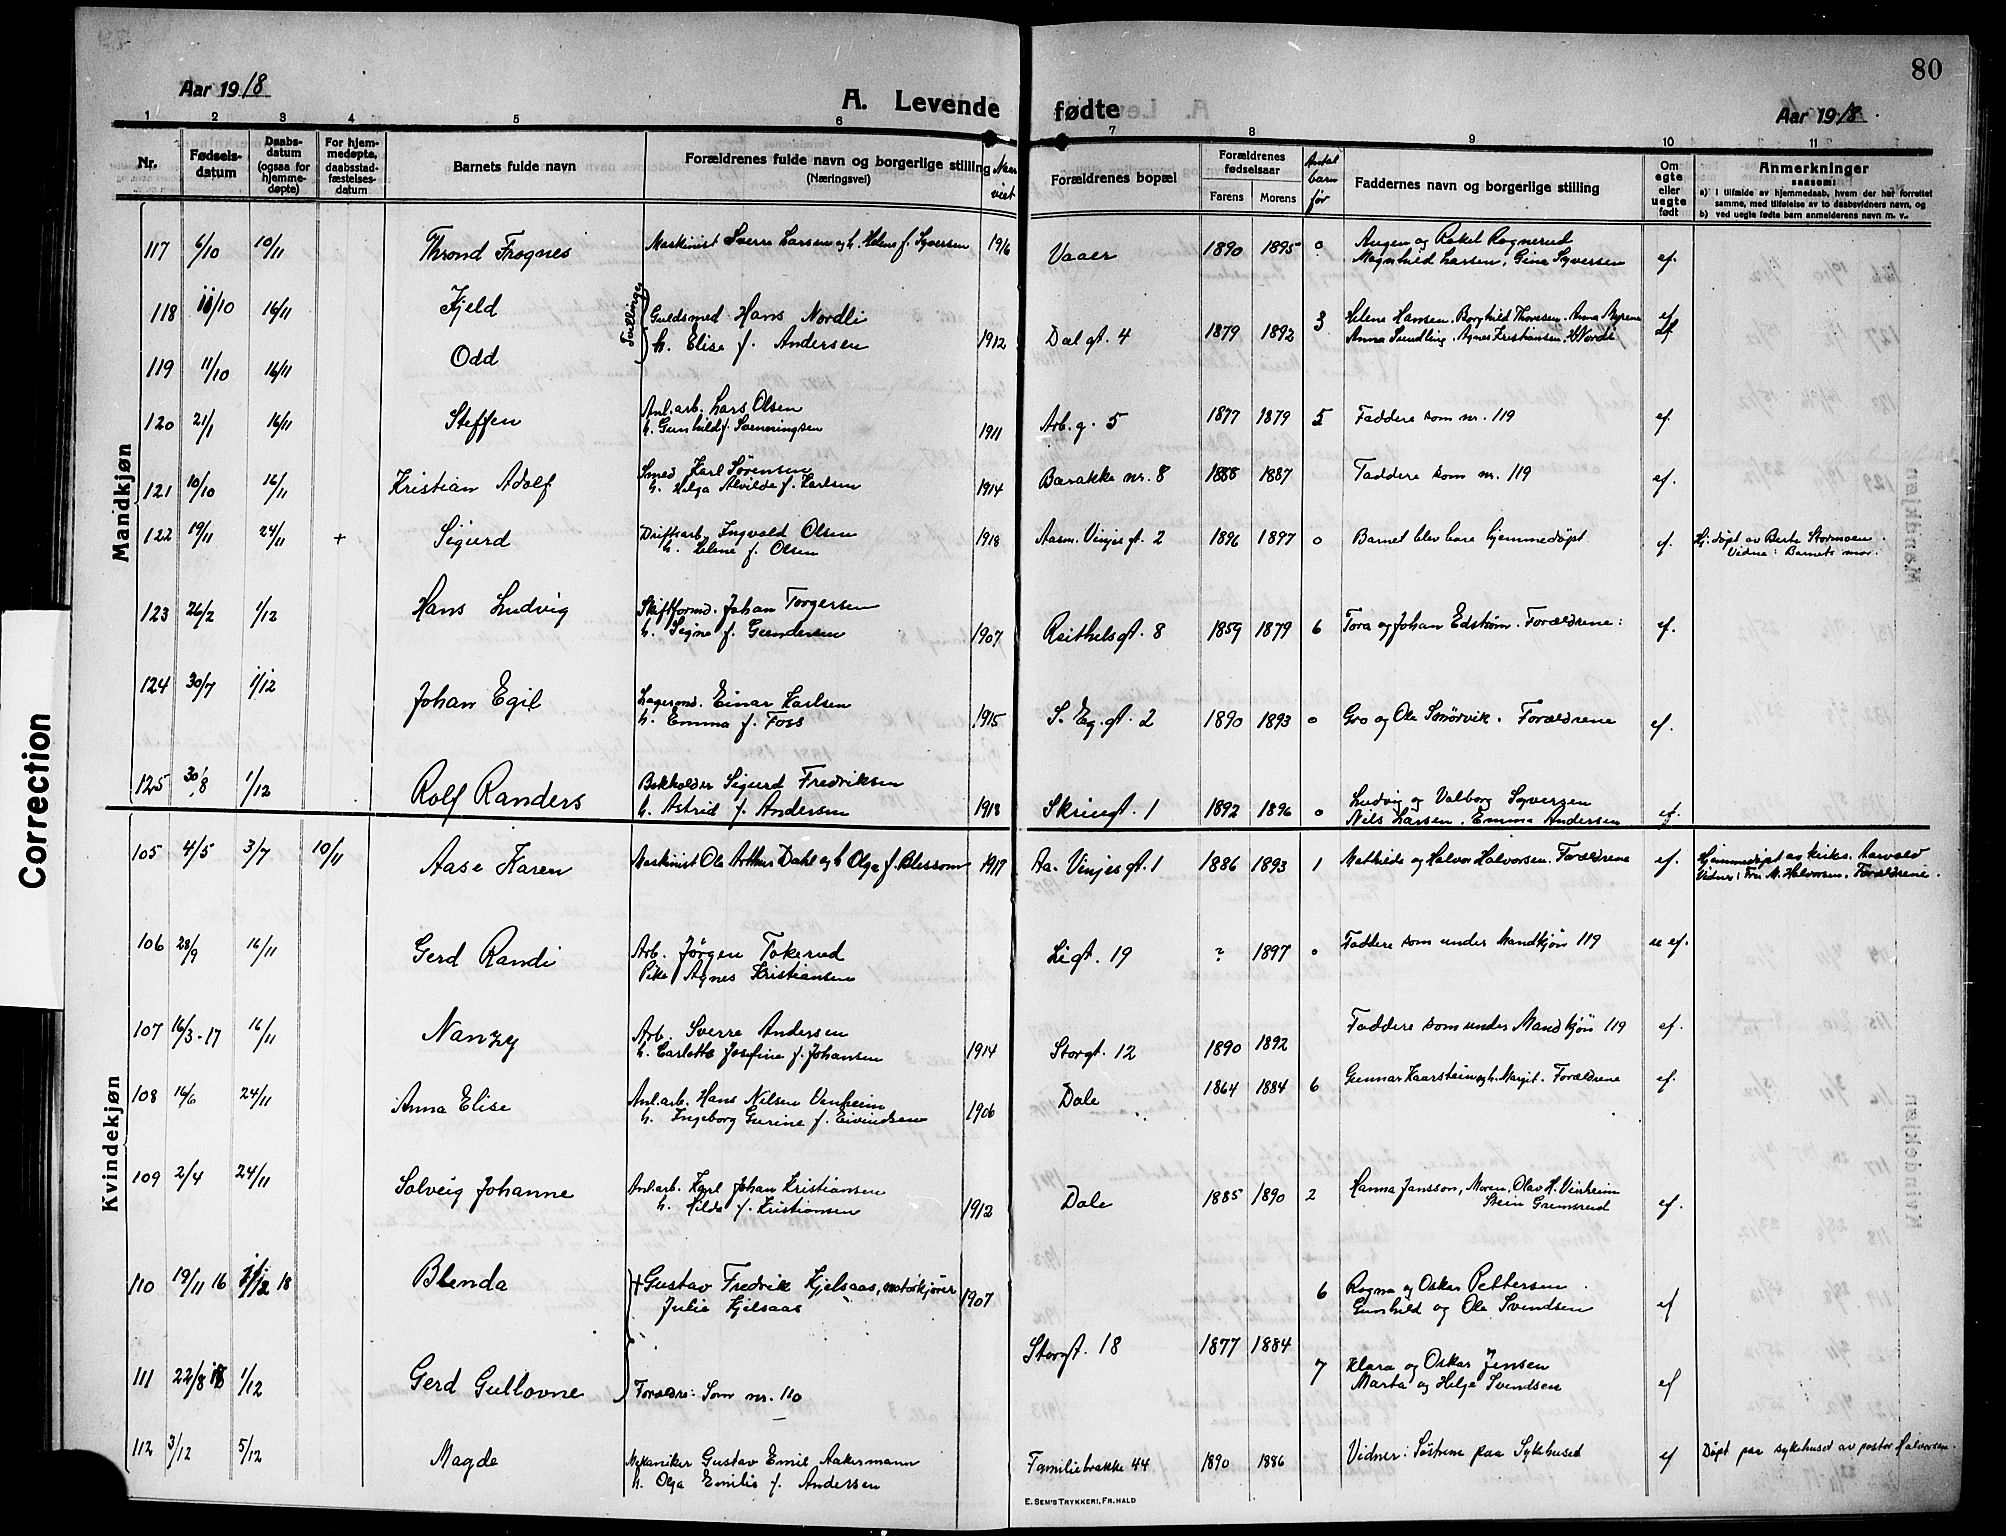 80
Aar 1918
A. Levende fødte
Aar 1918
1 2 3 4 5 6 7 8 9 10 11
Nr.
Fødselsdatum
Daabsdatum (ogsaa for hjemmedøpte)
For hjemmedøpte, daabsstadfæstelsesdatum
Barnets fulde navn
Forældrenes fulde navn og borgerlige stilling
(Næringsvei)
Forældrenes bopæl
Forældrenes fødselsaar
Farens Morens
Antal barn før
Faddernes navn og borgerlige stilling
Om egte eller uegte født
Anmerkninger
saasom:
a) i tilfælde av hjemmedaab, hvem der har forrettet samme, med tilføielse av to daabsvidners navn, og
b) ved uegte fødte barn anmelderens navn m. v.
Mandkjøn
117 6/10 10/11 Thrond Frognes Maskinist Sverre Larsen og h. Helene f. Syversen 1916 Vaaer 1890 1895 0 Augen og Rakel Rognerud
Magnhild Larsen, Gina Syversen ef.
118 11/10 16/11 Kjeld Tvillinger Guldsmed Hans Nordli
h. Elise f. Andersen 1912 Dal gt. 4 1879 1892 3 Helene Hansen. Borghild Thoresen. Anna Myrene ef
Anna Sundling. Agnes Kristiansen. H Nordli ef
119 11/10 16/11 Odd
120 21/1 16/11 Steffen Anl.arb. Lars Olsen
h. Gunhild f. Sveneringsen 1911 Arb. g. 5 1877 1879 5 Faddere som nr. 119 ef.
121 10/10 16/11 Kristian Adolf Smed Karl Sørensen
h. Helga Alvilde f. Karlsen 1914 Barakke nr. 8 1888 1887 Faddere som nr. 119 ef.
122 19/11 24/11 + Sigurd Driftsarb. Ingvald Olsen
h. Selene f. Olsen 1918 Aasm. Vinjes gt. 2 1896 1897 0 Barnet blev bare hjemmedøpt ef. Hj. døpt av Berte Stormoen.
Vidne: Barnets mor.
123 26/2 1/12 Hans Ludvig Skiftformd. Johan Torgersen
h. Signe f. Gundersen 1907 Reithels gt. 8 1859 1879 6 Tora og Johan Edstrøm. Forældrene: ef.
124 30/7 1/12 Johan Egil Lagerond. Einar Karlsen
h. Emma f. Foss 1915 S. Eg. gt. 2 1890 1893 0 Gro og Ole Sørvik. Forældrene ef.
125 30/8 1/12 Rolf Randers Bokholder Sigurd Fredriksen
h. Astrid f. Andersen 1918 Skriugt. 1 1892 1896 0 Ludvig og Valborg Syversen
Nils Larsen. Emma Andersen ef.
Kvindekjøn
105 4/5 3/7 10/11 Aase Karen Maskinist Ole Arthur Dahl og h. Olga f. Blessom 1917 Aa. Vinjes gt. 1 1886 1893 1 Mathilde og Halvor Halvorsen. Forældrene ef. Hjemmedøpt av kirks. Aarvold
Vidner: Fru M. Halvorsen. Forældrene.
106 28/9 16/11 Gerd Randi Arb. Jørgen Tokerud
Pike Agnes Kristiansen Ligt. 19 ? 1897 0 Faddere som under Mandkjøn 119 u ef.
107 16/3-17 16/11 Nanzy Arb. Sverre Andersen
h. Carlotte Josefine f. Johansen 1914 Storgt. 12 1890 1892 Faddere som under Mandkjøn 119 ef.
108 16/6 24/11 Anna Elise Anl.arb. Hans Nilsen Vinheim
h. Ingeborg Gurine f. Eivindsen 1906 Dale 1864 1884 6 Gunnar Kaarstein og h. Margit. Forældrene ef.
109 2/4 24/11 Solveig Johanne Anl.arb. Karl Johan Kristiansen
h. Hilda f. Kristiansen 1912 Dale 1885 1890 2 Hanna Jansson, Moren, Olav H. Vinheim
Stein Grimsrud ef.
110 19/11 16 1/12 18 Blenda + Gustav Fredrik Kjelsaas, motorkjører
Julie Kjelsaas 1907 6 Ragna og Oskar Pettersen.
Gunhild og Ole Svendsen ef
Storgt. 18 1877 1884
111 22/8 18 1/12 Gerd Gullovne Foræltre: Som nr. 110 7 Klara og Oskar Jensen
Marta og Helje Svendsen ef
112 3/12 5/12 Magda Mekaniker Gustav Emil Aakermann
h. Olga Emilie f. Andersen Familiebrakke 44 1890 1886 Vidner: Søstrene paa Sykehuset ef Døpt paa sykehuset av pastor Halvorsen.
E. SEM'S TRYKKERI, FR. HALD
Correction